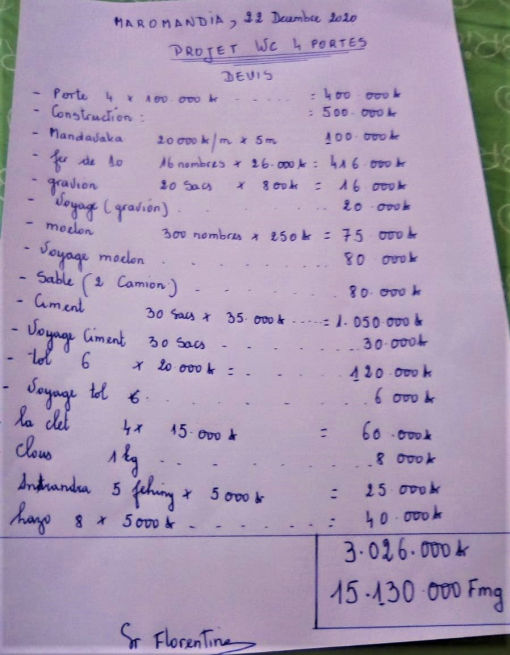 MAROMANDIA, 22 Decembre 2020
PROJET WC 4 PORTES
DEVIS
- Porte 4 x 100.000 A ..... = 400.000A
- Construction : : 500.000A
- Mandavaka 20000A/m x 5m 100.000A
- fer de 10 16 nombres x 26.000A = 416.000A
- gravion 20 Sacs x 800A = 16 000A
- Voyage (gravion) . . . . . 20 000A
- moelon 300 nombres x 250A = 75 000A
- Voyage moelon . . . . . . . 80 000A
- Sable (2 Camion) . . . . . 80.000A
- Ciment 30 Sacs x 35.000A ..... = 1.050.000A
- Voyage Ciment 30 Sacs . . . . . 30.000A
- tol 6 x 20.000A = . . . . 120.000A
- Voyage tol 6 . . . . . . . 6 000A
la clet 4x 15.000A = 60.000A
Clous 1kg . . . . . . . 8 000A
Antrandra 5 fehiny x 5000A = 25.000A
hazo 8 x 5000A . . . . . : 40.000A
3.026.000A
15.130.000 Fmg
Sr Florentine